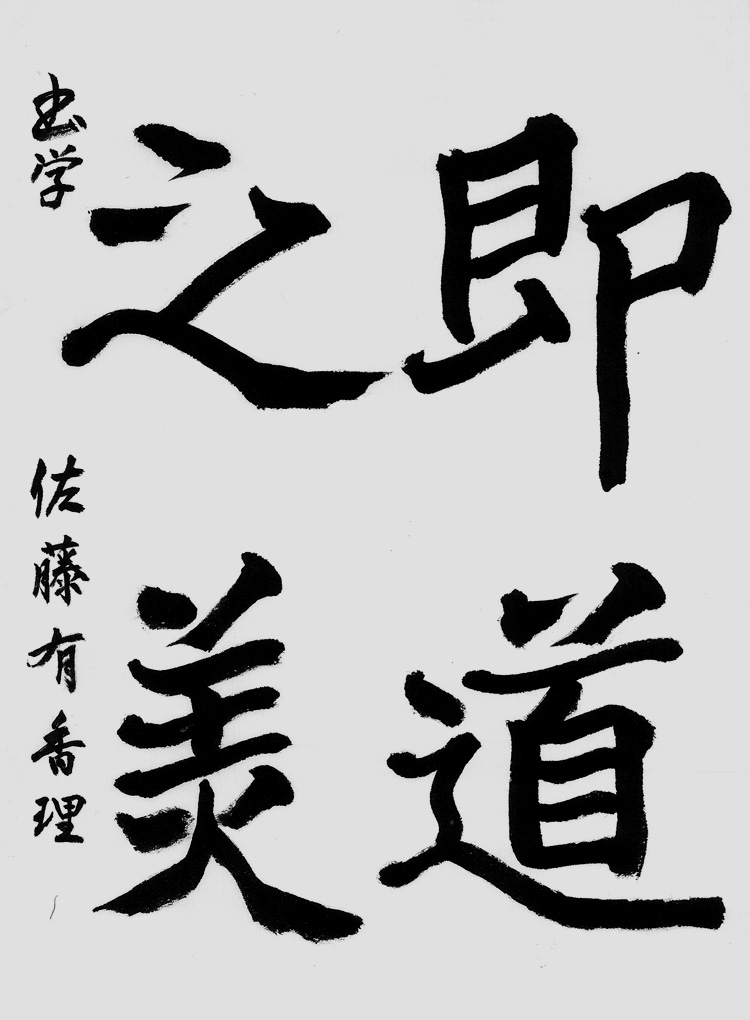 即道
之羙
書学 佐藤有香理